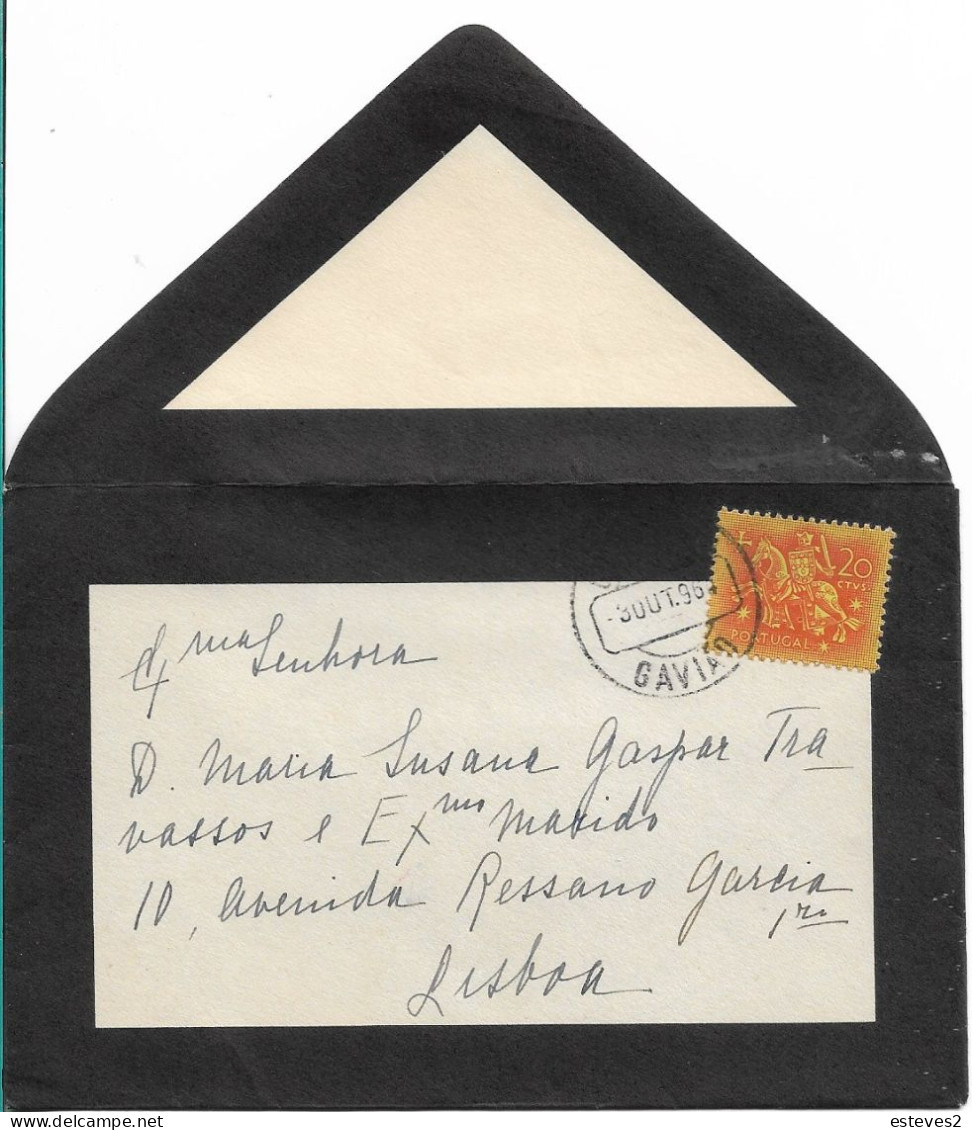 20
CTVS.
PORTUGAL
-3 OUT.96
GAVIÃO
Exma Senhora
D. Maria Susana Gaspar Tra
vassos e Exmo Marido
10, Avenida Ressano Garcia
Lisboa
esteves2